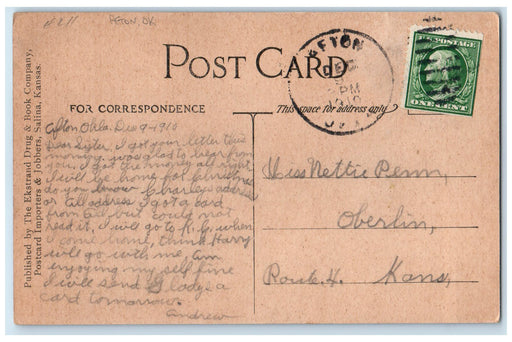 AFTON, OK
POST CARD
FOR CORRESPONDENCE
This space for address only
AFTON
DEC
PM
U.S. POSTAGE
ONE CENT
Published by The Ekstrand Drug & Book Company,
Postcard Importers & Jobbers, Salina, Kansas.
Afton Okla. Dec 9-1910
Dear Sister. I got your letter this
morning, was glad to hear from
you. I got the money all right
I will be home for Christmas
do you know Charley's address
or Ed address I got a card
from Ed, but could not
read it, I will go to K.C. when
I come home, think Harry
will go with me, am
enjoying my self fine
I will send Glady a
card tomorrow.
Andrew
Miss Nettie Penn,
Oberlin,
Route 4. Kans,